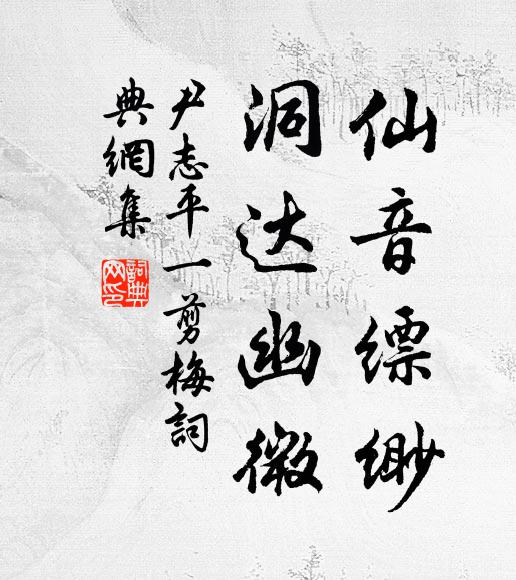 仙音缥缈
洞达幽微
尹志平一剪梅詞
典網集
詞典
网印